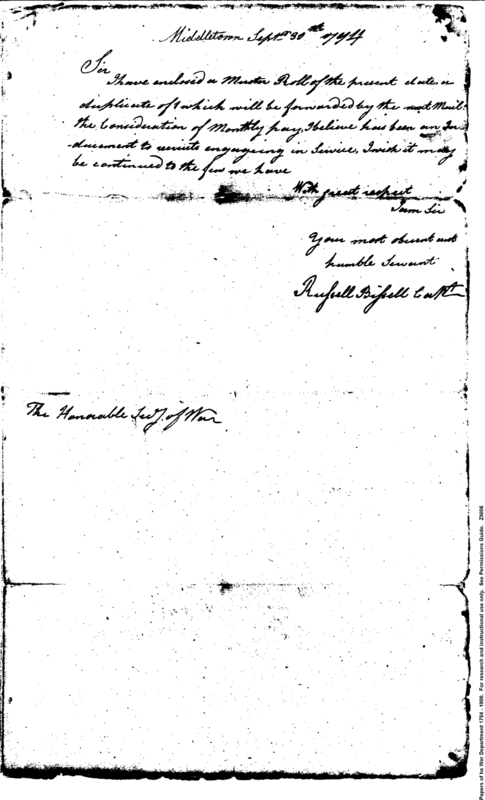 Middletown Sept. 30th 1794
Sir
I have enclosed a Muster Roll of the present date a
duplicate of which will be forwarded by the next Mail
the Consideration of Monthly pay, I believe has been an In
-ducement to recruits engageing in Service, I wish it may
be continued to the few we have
With great respect
I am Sir
Your most obedient and
humble Servant
Russell Bissell Capt
The Honorable Secy. of War
Papers of he War Department 1784 - 1800. For research and instructional use only. See Permissions Guide. ZN606